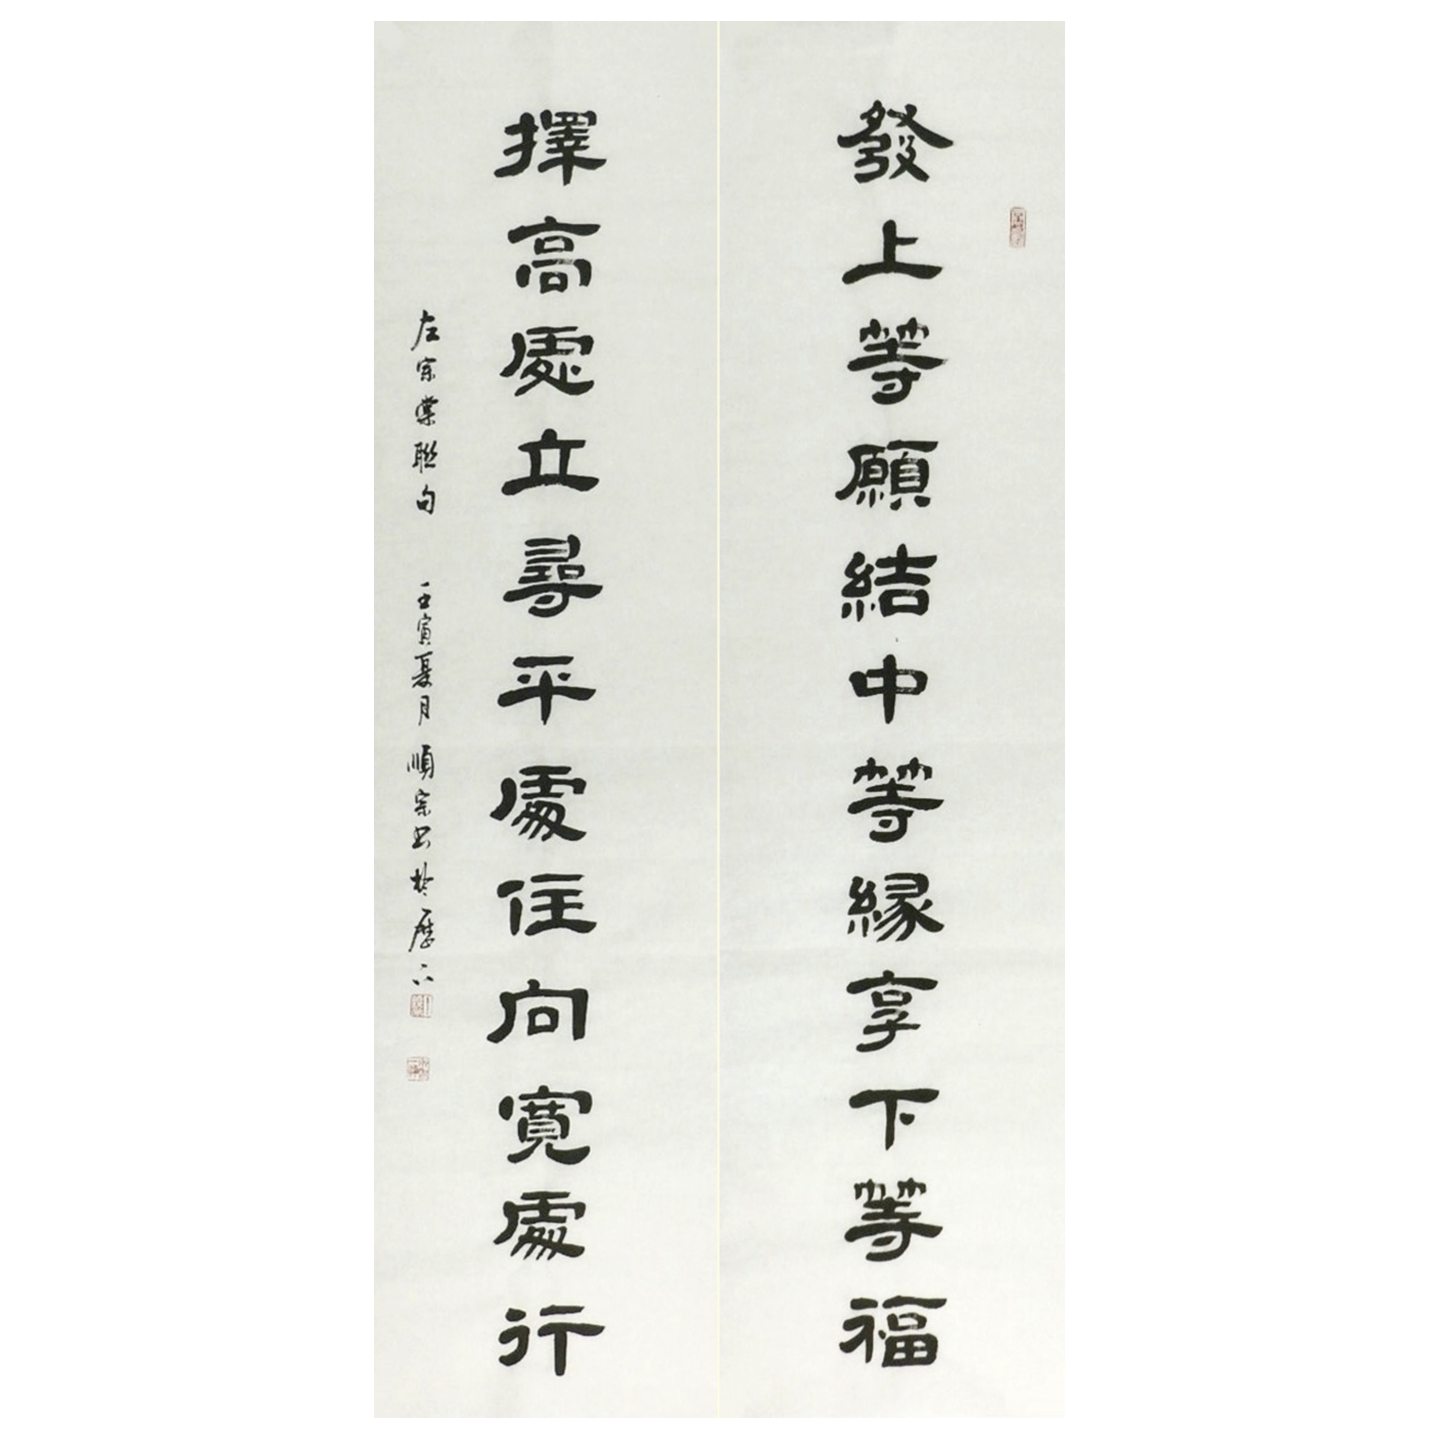 發上等願結中等緣享下等福
擇高處立尋平處住向寬處行
左宗棠聯句 壬寅夏月 順宗書於歷下